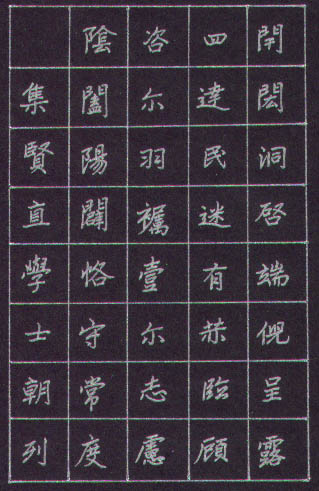 開閎洞啓端倪呈露
四達民迷有恭臨顧
咨尔羽襦壹尔志慮
陰闔陽闢恪守常度
集賢直學士朝列